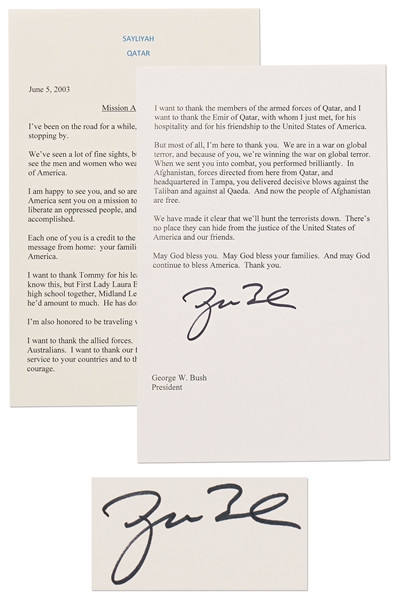 SAYLIYAH
QATAR
June 5, 2003
Mission A
I've been on the road for a while,
stopping by.
We've seen a lot of fine sights, bu
see the men and women who wea
of America.
I am happy to see you, and so are
America sent you on a mission to
liberate an oppressed people, and
accomplished.
Each one of you is a credit to the
message from home: your familie
America.
I want to thank Tommy for his lea
know this, but First Lady Laura B
high school together, Midland Le
he'd amount to much. He has don
I'm also honored to be traveling w
I want to thank the allied forces.
Australians. I want to thank our f
service to your countries and to th
courage.
I want to thank the members of the armed forces of Qatar, and I
want to thank the Emir of Qatar, with whom I just met, for his
hospitality and for his friendship to the United States of America.
But most of all, I'm here to thank you. We are in a war on global
terror, and because of you, we're winning the war on global terror.
When we sent you into combat, you performed brilliantly. In
Afghanistan, forces directed from here from Qatar, and
headquartered in Tampa, you delivered decisive blows against the
Taliban and against al Qaeda. And now the people of Afghanistan
are free.
We have made it clear that we'll hunt the terrorists down. There's
no place they can hide from the justice of the United States of
America and our friends.
May God bless you. May God bless your families. And may God
continue to bless America. Thank you.
George W. Bush
President